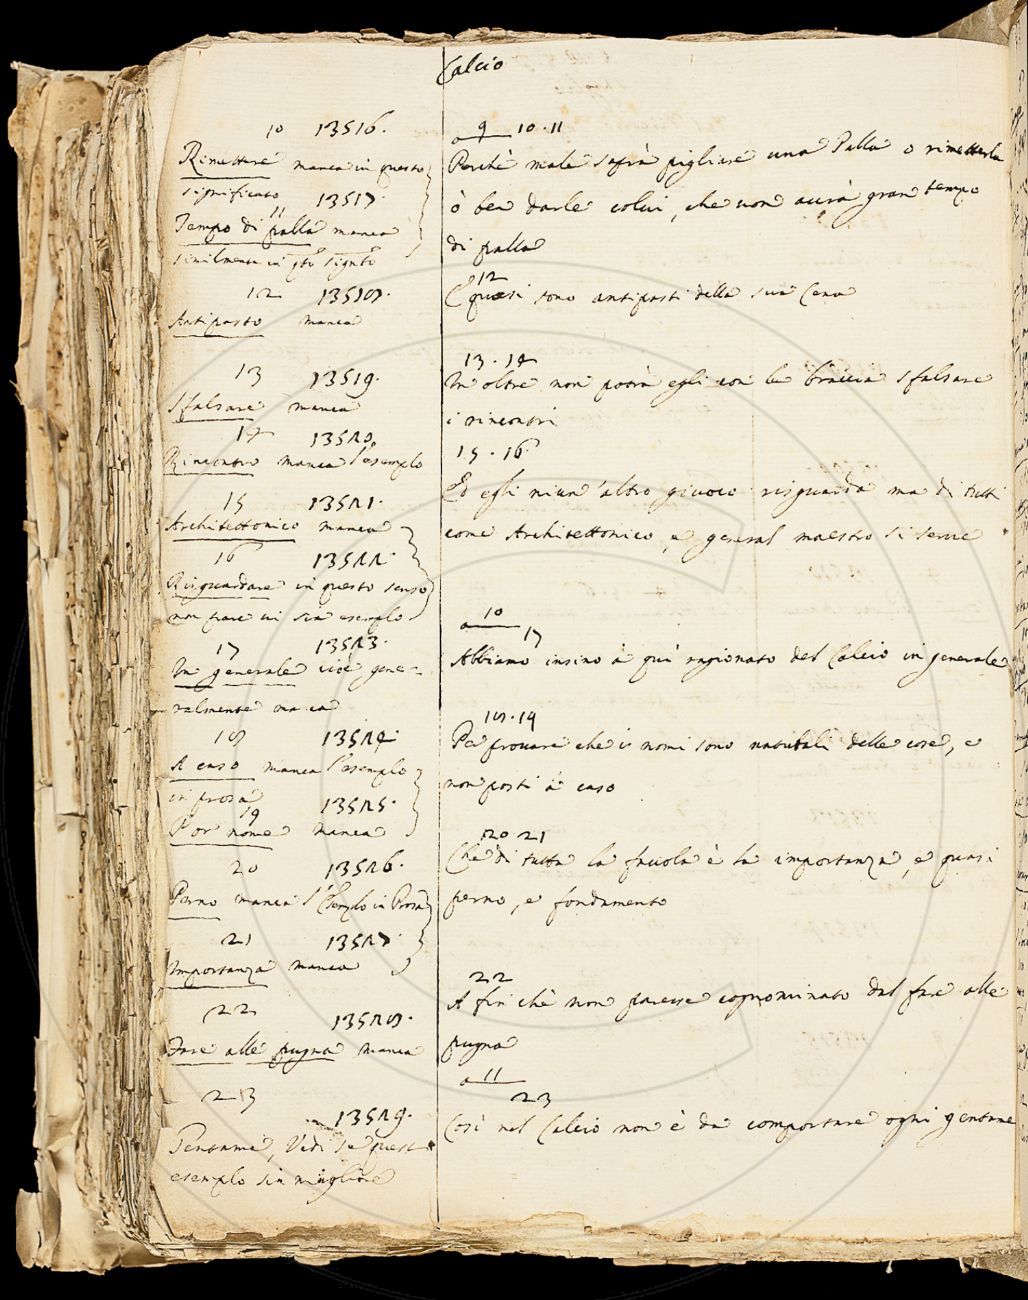 Calcio
10 13516.
Rimettere manca in questo
significato 13517
11
Tempo di palla manca
similmente in qto signto
12 13518.
Antipasto manca
13 13519.
Sfalsare manca
14 13520
Rincontro manca l'esemplo
15 13521.
Architettonico manca
16 13522.
Risguardare in questo senso
non pare vi sia esemplo
17 13523.
In generale cioè gene-
ralmente manca
18 13524.
A caso manca l'esemplo
in prosa 13525.
19
Por nome manca
20 13526.
Perno manca l'esemplo in Prosa
21 13527.
Importanza manca
22 13528.
Fare alle pugna manca
23
13529.
Gentame, Vedi se quest
esemplo sia migliore
a 9 10.11
Perchè male saprà pigliare una Palla o rimetterla
ò ben darle colui, che non avrà gran tempo
di palla
12
E quasi sono antipasti della sua Cena
13.14
In oltre non potrà egli con le braccia sfalsare
i rincontri
15.16
Ed egli niun'altro giuoco risguarda ma di tutti
come Architettonico, e general maestro si serve
a 10
17
Abbiamo insino à quì ragionato del Calcio in generale
18.19
Per provare che i nomi sono naturali delle cose, e
non posti à caso
20 21
Che di tutta la favola è la importanza, e quasi
perno, e fondamento
22
A fin chè non paresse cognominato dal fare alle
pugna
a 11
23
Così nel Calcio non è da comportare ogni gentame